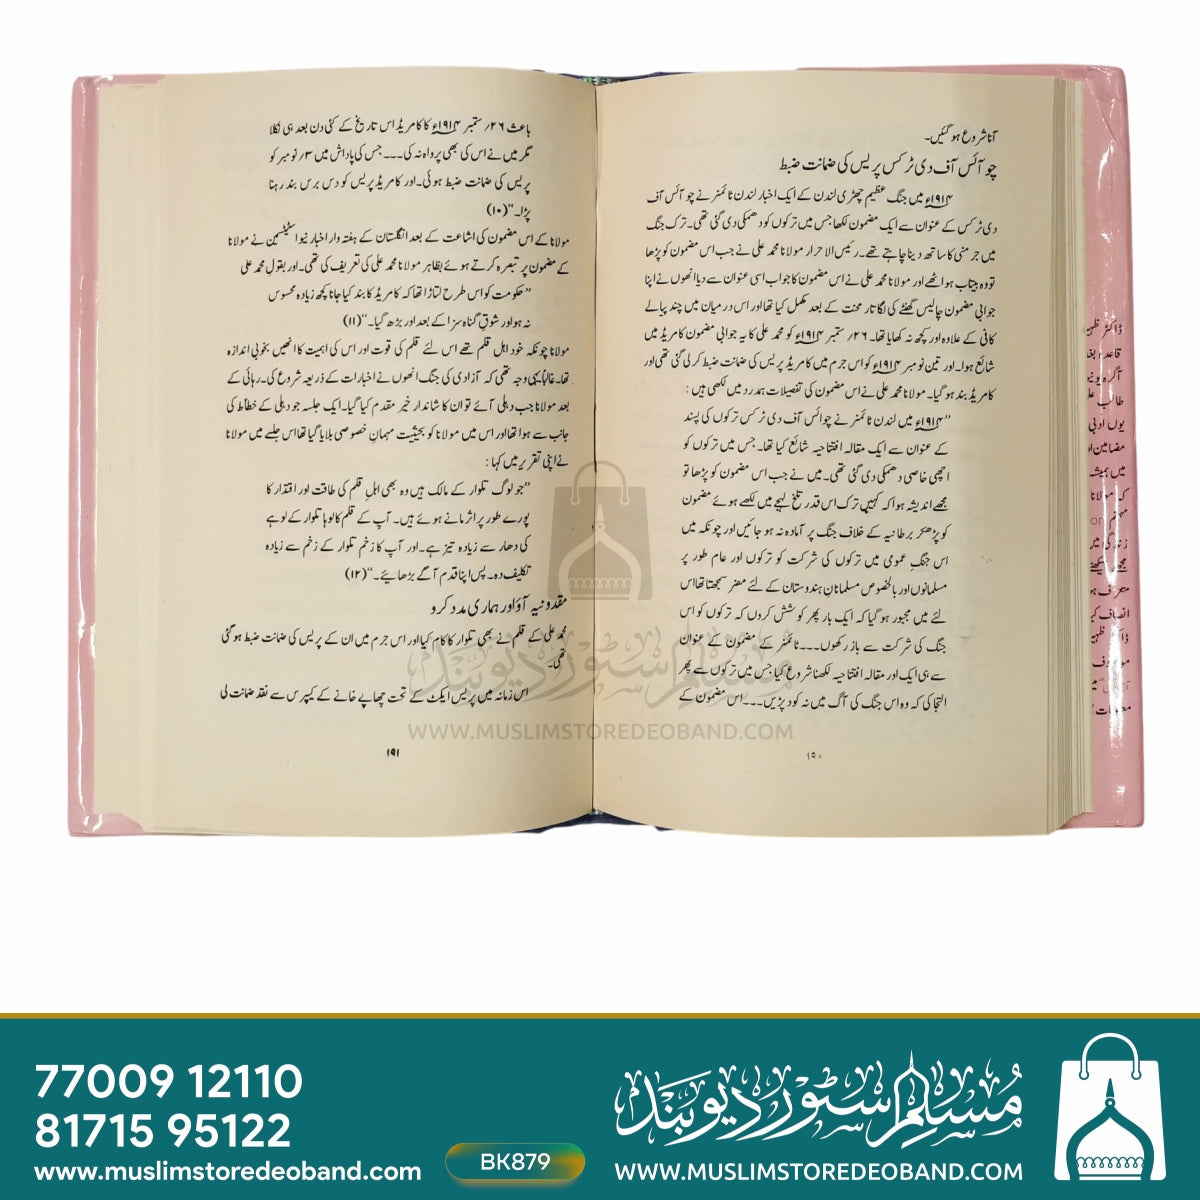 آنا شروع ہو گئیں۔
چوائس آف دی ٹرکس پریس کی ضمانت ضبط
۱۹۱۴ء میں جنگ عظیم چھڑی لندن کے ایک اخبار لندن ٹائمز نے چوائس آف
دی ٹرکس کے عنوان سے ایک مضمون لکھا جس میں ترکوں کو دھمکی دی گئی تھی۔ ترک جنگ
میں جرمنی کا ساتھ دینا چاہتے تھے۔ رئیس الاحرار مولانا محمد علی نے جب اس مضمون کو پڑھا
تو وہ بیتاب ہو اٹھے اور مولانا محمد علی نے اس مضمون کا جواب اسی عنوان سے دیا انھوں نے اپنا
جوابی مضمون چالیس گھنٹے کی لگاتار محنت کے بعد مکمل کیا تھا اور اس درمیان میں چند پیالے
کافی کے علاوہ اور کچھ نہ کھایا تھا۔ ۲۶؍ ستمبر ۱۹۱۴ء کو محمد علی کا یہ جوابی مضمون کامریڈ میں
شائع ہوا۔ اور تین نومبر ۱۹۱۴ء کو اس جرم میں کامریڈ پریس کی ضمانت ضبط کر لی گئی تھی اور
کامریڈ بند ہو گیا۔ مولانا محمد علی نے اس مضمون کی تفصیلات ہمدرد میں لکھی ہیں:
”۱۹۱۴ء میں لندن ٹائمز نے چوائس آف دی ٹرکس ترکوں کی پسند
کے عنوان سے ایک مقالہ افتتاحیہ شائع کیا تھا۔ جس میں ترکوں کو
اچھی خاصی دھمکی دی گئی تھی۔ میں نے جب اس مضمون کو پڑھا تو
مجھے اندیشہ ہوا کہ کہیں ترک اس قدر تلخ لہجے میں لکھے ہوئے مضمون
کو پڑھ کر برطانیہ کے خلاف جنگ پر آمادہ نہ ہو جائیں اور چونکہ میں
اس جنگ عمومی میں ترکوں کی شرکت کو ترکوں اور عام طور پر
مسلمانوں اور بالخصوص مسلمانان ہندوستان کے لئے مضر سمجھتا تھا اس
لئے میں مجبور ہو گیا کہ ایک بار پھر کوشش کروں کہ ترکوں کو اس
جنگ کی شرکت سے باز رکھوں۔۔۔ ٹائمز کے مضمون کے عنوان
سے ہی ایک اور مقالہ افتتاحیہ لکھنا شروع کیا جس میں ترکوں سے پھر
التجا کی کہ وہ اس جنگ کی آگ میں نہ کود پڑیں۔۔۔ اس مضمون کے
باعث ۲۶؍ ستمبر ۱۹۱۴ء کا کامریڈ اس تاریخ کے کئی دن بعد ہی نکلا
مگر میں نے اس کی بھی پرواہ نہ کی۔۔۔ جس کی پاداش میں ۳؍ نومبر کو
پریس کی ضمانت ضبط ہوئی۔ اور کامریڈ پریس کو دس برس بند رہنا
پڑا۔“ (۱۰)
مولانا کے اس مضمون کی اشاعت کے بعد انگلستان کے ہفتہ وار اخبار نیو اسٹیٹسمین نے مولانا
کے مضمون پر تبصرہ کرتے ہوئے بظاہر مولانا محمد علی کی تعریف کی تھی۔ اور بقول محمد علی
”حکومت کو اس طرح لتاڑا تھا کہ کامریڈ کا بند کیا جانا کچھ زیادہ محسوس
نہ ہو اور شوق گناہ سزا کے بعد اور بڑھ گیا۔“ (۱۱)
مولانا چونکہ خود اہل قلم تھے اس لئے قلم کی قوت اور اس کی اہمیت کا انھیں بخوبی اندازہ
تھا۔ غالباً یہی وجہ تھی کہ آزادی کی جنگ انھوں نے اخبارات کے ذریعہ شروع کی۔ رہائی کے
بعد مولانا جب دہلی آئے تو ان کا شاندار خیر مقدم کیا گیا۔ ایک جلسہ جو دہلی کے خطاط کی
جانب سے ہوا تھا اور اس میں مولانا کو بحیثیت مہمان خصوصی بلایا گیا تھا اس جلسے میں مولانا
نے اپنی تقریر میں کہا:
”جو لوگ تلوار کے مالک ہیں وہ بھی اہل قلم کی طاقت اور اقتدار کا
پورے طور پر اثر مانے ہوئے ہیں۔ آپ کے قلم کا لوہا تلوار کے لوہے
کی دھار سے زیادہ تیز ہے۔ اور آپ کا زخم تلوار کے زخم سے زیادہ
تکلیف دہ۔ پس اپنا قدم آگے بڑھائیے۔“ (۱۲)
مقدونیہ آؤ اور ہماری مدد کرو
محمد علی کے قلم نے بھی تلوار کا کام کیا اور اس جرم میں ان کے پریس کی ضمانت ضبط ہو گئی
تھی۔
اس زمانہ میں پریس ایکٹ کے تحت چھاپے خانے کے کیپرس سے نقد ضمانت لی
۱۹۱
مسلم سٹور دیوبند
WWW.MUSLIMSTOREDEOBAND.COM
77009 12110
81715 95122
www.muslimstoredeoband.com
BK879
مسلم سٹور دیوبند
WWW.MUSLIMSTOREDEOBAND.COM